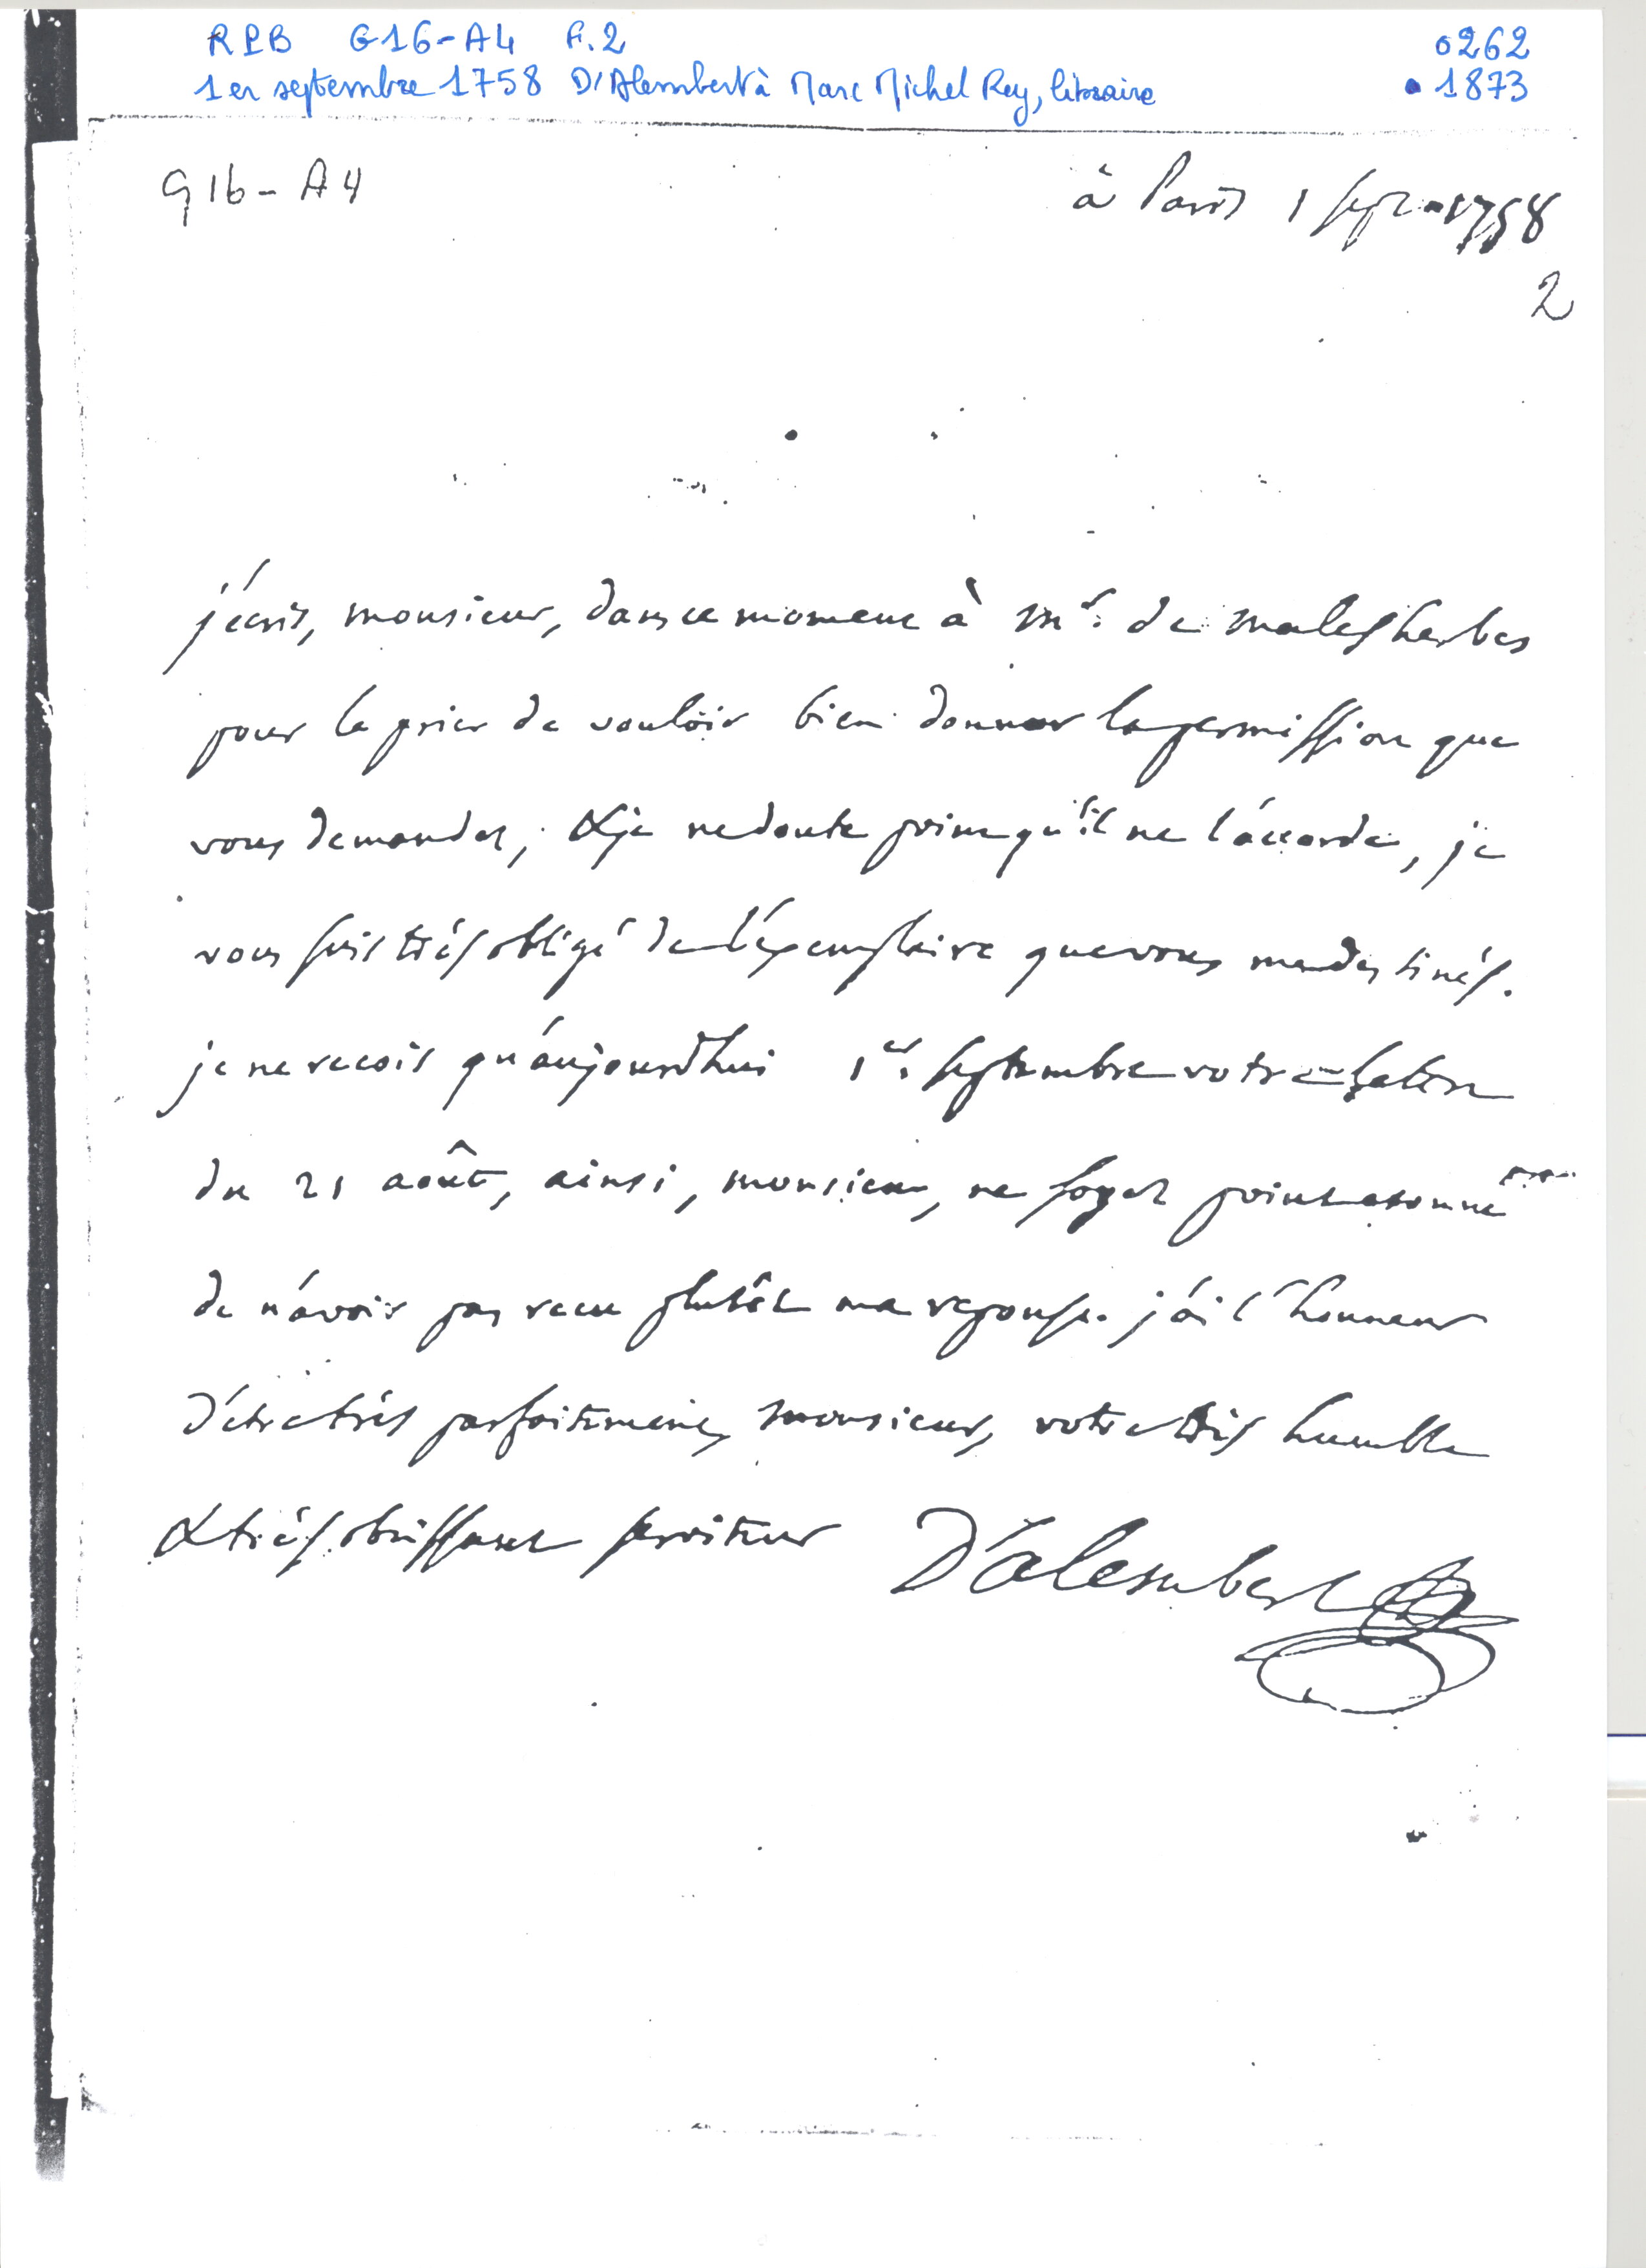 RPB G16-A4 F.2 0262
1er septembre 1758 D'Alembert à Marc Michel Rey, libraire • 1873
G16-A4
à Paris 1 sept. 1758
2
j'écris, monsieur, dans ce moment à Mr. de malesherbes
pour le prier de vouloir bien donner la permission que
vous demandez, & je ne doute point qu'il ne l'accorde, je
vous suis très obligé de l'exemplaire que vous me destinés.
je ne recois qu'aujourdhui 1er. septembre votre lettre
du 21 août, ainsi, monsieur, ne soyez point etonné
de n'avoir pas recu plutôt ma reponse. j'ai l'honneur
d'etre très parfaitement, monsieur, votre très humble
& très obeissant serviteur D'alembert